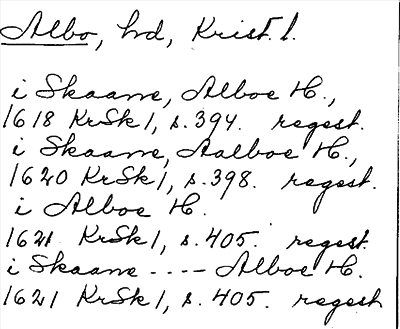 Albo, hd, Krist. l.
i Skaane, Alboe H.,
1618 KrSk 1, s. 394. regest.
i Skaane, Aalboe H.,
1620 KrSk 1, s. 398. regest.
i Alboe H.
1621 KrSk 1, s. 405. regest.
i Skaane ---- Alboe H.
1621 KrSk 1, s. 405. regest